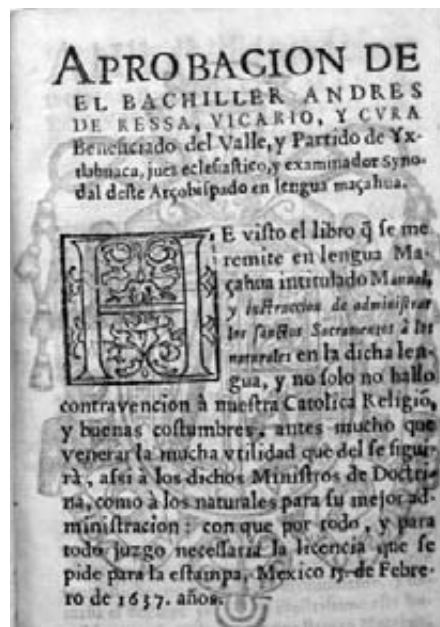 APROBACION DE
EL BACHILLER ANDRES
DE RESSA, VICARIO, Y CVRA
Beneficiado del Valle, y Partido de Yx-
tlahuaca, juez eclesiastico, y examinador Syno-
dal deste Arçobispado en lengua maçahua.
HE visto el libro q̃ se me
remite en lengua Ma-
çahua intitulado Manual,
y instruccion de administrar
los sanctos Sacramentos à los
naturales en la dicha len-
gua, y no solo no hallo
contravencion à nuestra Catolica Religiõ,
y buenas costumbres, antes mucho que
venerar la mucha vtilidad que del se segui-
rà, assi à los dichos Ministros de Doctri-
na, como à los naturales para su mejor ad-
ministracion: con que por todo, y para
todo juzgo necessaria la licencia que se
pide para la estampa, Mexico 17. de Febre-
ro de 1637. años.